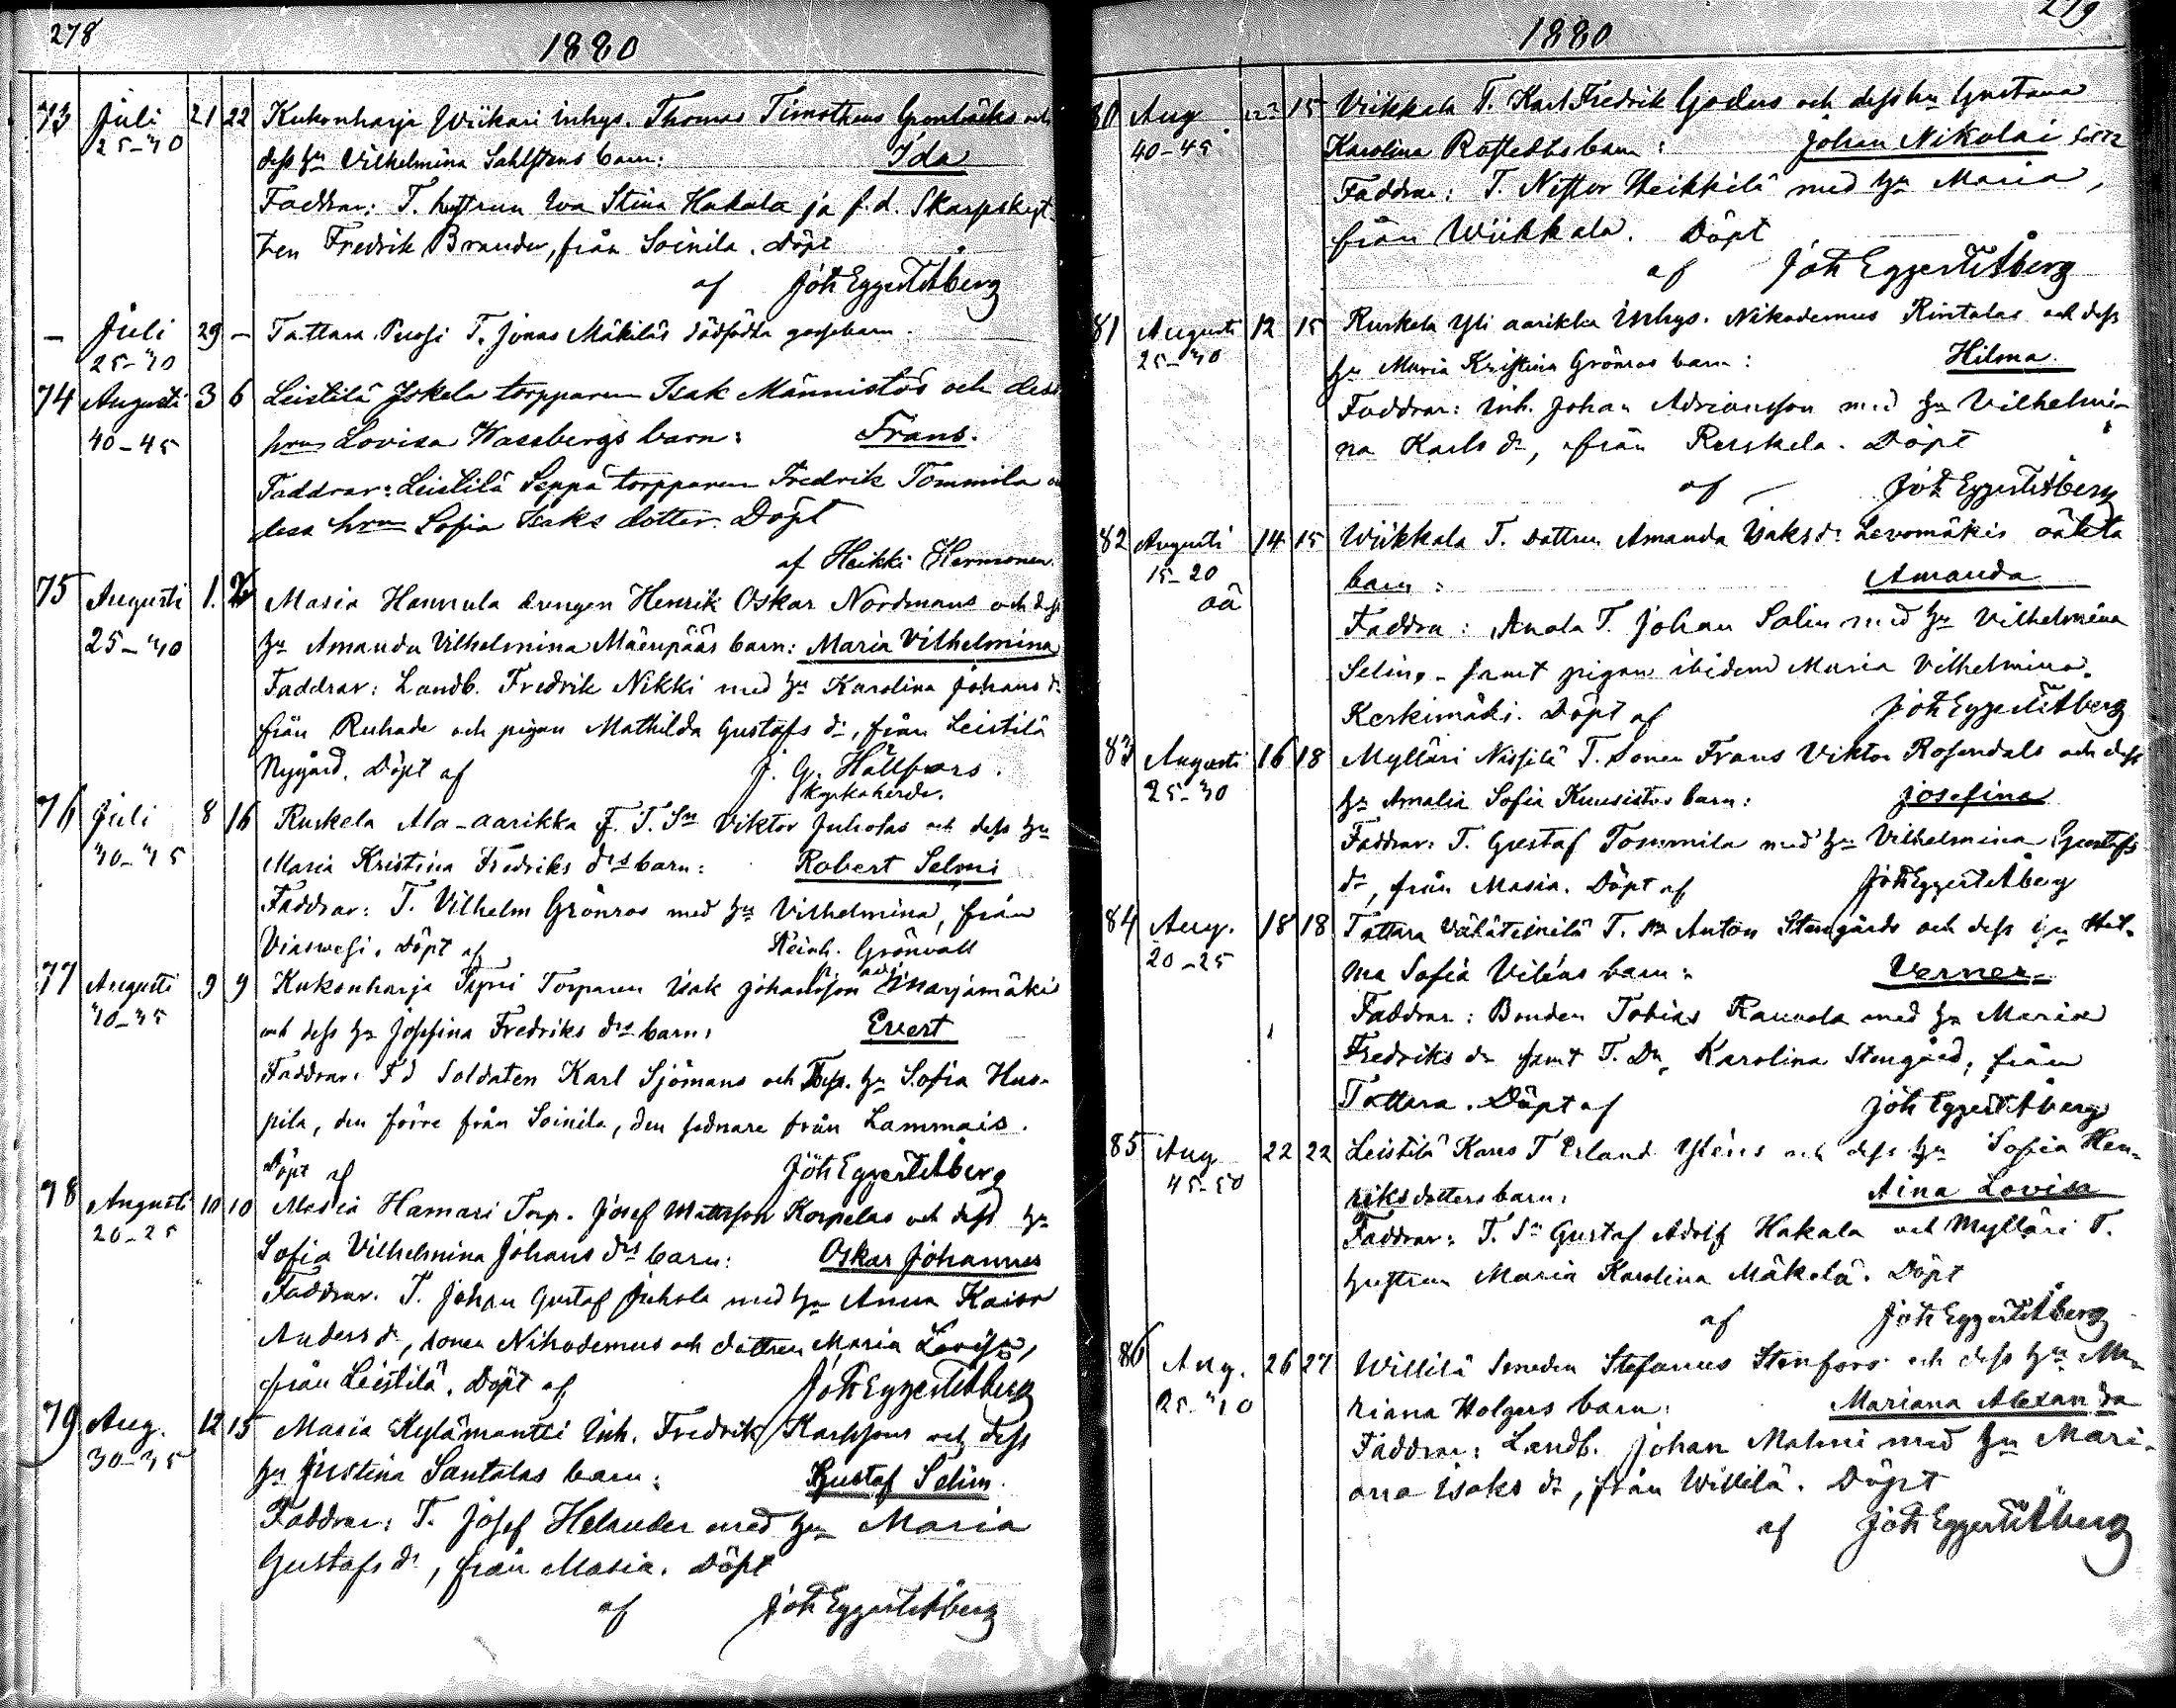 278
1880
73 Juli 21 22 Kukonharja Wiikari inhys. Thomas Timotheus Grönbäcks och
25-30 dess hu Vilhelmina Sahlstens barn: Ida
Faddrar: T. hustrun Eva Stina Hakala ja f.d. Skarpskyt-
ten Fredrik Brander, från Soinila. Döpt
af Joh Eggert Åberg
— Juli 29 — Tattara Puosi T. Jonas Mäkiläs dödfödda gossebarn.
25-30
74 Augusti 3 6 Leistilä Iskela torpparen Isak Männistös och dess
40-45 hru Lovisa Wassbergs barn: Frans.
Faddrar: Leistilä Seppä torpparen Fredrik Tommila
dess hru Sofia Isaks dotter. Döpt
af Heikki Hermonen.
75 Augusti 1. 2 Masia Hannula drengen Henrik Oskar Nordmans och dess
25-30 hu Amanda Vilhelmina Mäenpääs barn: Maria Vilhelmina
Faddrar: Landb. Fredrik Nikki med hu Karolina Johans dr
från Ruhade och pigan Mathilda Gustafs dr, från Leistilä
Nygård. Döpt af J. G. Hällfors.
Kyrkoherde.
76 Juli 8 16 Ruskela Ala-aarikka T. Sn Viktor Juholas och dess hu
30-35 Maria Kristina Fredriks drs barn: Robert Selmi
Faddrar: T. Vilhelm Grönros med hu Vilhelmina, från
Viasvesi. Döpt af Reinh. Grönvall
77 Augusti 9 9 Kukonharja Torparen Isak Johansson Marjamäki
30-35 och dess hu Josefina Fredriks drs barn: Evert
Faddrar: Fd Soldaten Karl Sjömans och hu Sofia Hus-
pila, den förre från Soinila, den sednare från Lammais.
Döpt af Joh Eggert Åberg
78 Augusti 10 10 Masia Hamari Torp. Josef Mattsson Korpelas och dess hu
20-25 Sofia Vilhelmina Johans drs barn: Oskar Johannes
Faddrar: T. Johan Gustaf Juhola med hu Anna Kaisa
Anders dr, sonen Nikodemus och dottren Maria Lovisa,
från Leistilä. Döpt af Joh Eggert Åberg
79 Aug. 12 15 Masia Kylämantti Inh. Fredrik Karlssons och dess
30-35 hu Justina Santalas barn: Gustaf Selim.
Faddrar: T. Josef Helander med hu Maria
Gustafs dr, från Masia. Döpt
af Joh Eggert Åberg
279
1880
80 Aug 12 15 Viikkala T. Karl Fredrik Goders och dess hu Gustava
40-45 Karolina Rostedts barn: Johan Nikolai
Faddrar: T. Nestor Heikkilä med hu Maria,
från Wiikkala. Döpt
af Joh Eggert Åberg
81 Augusti 12 15 Ruskela Yli aarikka Inhys. Nikodemus Rintalas och dess
25-30 hu Maria Kristina Grönros barn: Hilma.
Faddrar: Inh. Johan Adriansson med hu Vilhelmi-
na Karls dr, från Ruskela. Döpt
af Joh Eggert Åberg
82 Augusti 14 15 Wiikkala T. dottren Amanda Isaks dr Levomäkis oäkta
15-20 barn: Amanda
oä Faddra: Anola T. Johan Salin med hu Vilhelmina
Selin, samt pigan ibidem Maria Vilhelmina
Kerkimäki. Döpt af Joh Eggert Åberg
83 Augusti 16 18 Mylläri Nissilä T. Sonen Frans Viktor Rosendals och dess
25-30 hu Amalia Sofia Kuusistos barn: Josefina
Faddrar: T. Gustaf Tommila med hu Vilhelmina Gustafs
dr, från Masia. Döpt af Joh Eggert Åberg
84 Aug. 18 18 Tattara Vähäteinilä T. sn Anton Stengårds och dess hu Hil-
20-25 ma Sofia Viléns barn: Verner
Faddrar: Bonden Tobias Rauvola med hu Maria
Fredriks dr samt T. Dn Karolina Stengård, från
Tattara. Döpt af Joh Eggert Åberg
85 Aug 22 22 Leistilä Kares T Erland Yléns och dess hu Sofia Hen-
45-50 riksdotters barn: Aina Lovisa
Faddrar: T. Sn Gustaf Adolf Hakala och Mylläri T.
hustrun Maria Karolina Mäkelä. Döpt
af Joh Eggert Åberg
86 Aug. 26 27 Willilä Smeden Stefanus Stenfors och dess hu Ma-
25-30 riana Holgers barn: Mariana Alexanda
Faddrar: Landb. Johan Malmi med hu Mari-
ana Isaks dr, från Willilä. Döpt
af Joh Eggert Åberg